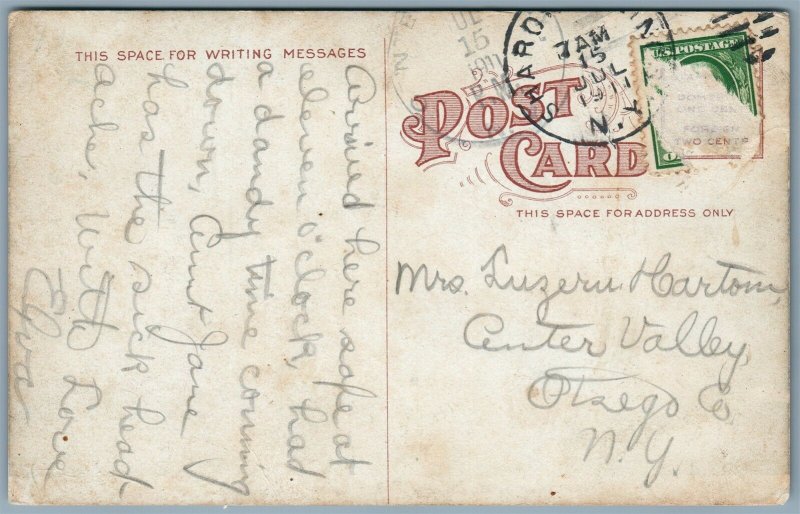 THIS SPACE FOR WRITING MESSAGES
Arrived here safe at
eleven o'clock, had
a dandy time coming
down, Aunt Jane
has the sick head
ache, With Love
Elva
POST
CARD
THIS SPACE FOR ADDRESS ONLY
SHARON
7 AM
15
JUL
1911
N.Y.
JUL
15
U.S. POSTAGE
FOREIGN
TWO CENTS
Mrs. Luzern Hartom,
Center Valley,
Otsego Co.
N.Y.